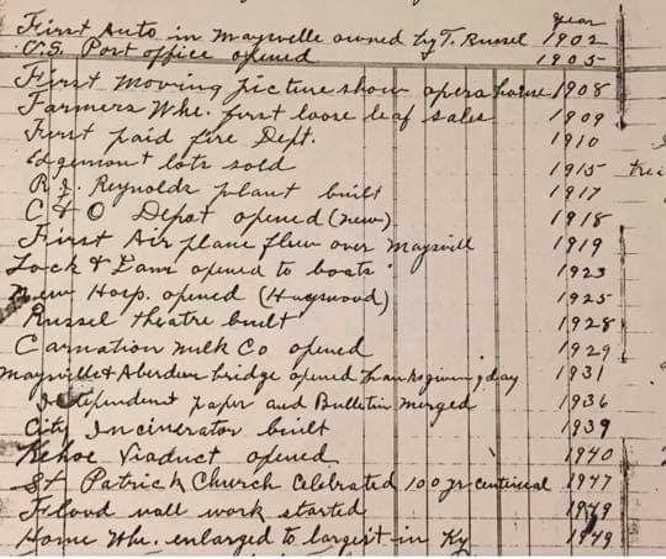 year
First Auto in Maysville owned by T. Russel 1902
U.S. Post office opened 1905
First moving picture show opera house 1908
Farmers Whe. first loose leaf sales 1909
First paid fire Dept. 1910
Edgemont lots sold 1915
R.J. Reynolds plant built 1917
C & O Depot opened (new) 1918
First Air plane flew over Maysvill 1919
Lock & Dam opened to boats 1923
New Hosp. opened (Hayswood) 1925
Russel theatre built 1928
Carnation milk Co opened 1929
Maysville & Aberdeen bridge opened thanksgiving day 1931
Independent paper and Bulletin merged 1936
City Incinerator built 1939
Kehoe Viaduct opened 1940
St Patrick Church Celebrated 100 yr centinial 1947
Flood wall work started 1949
Home Whe. enlarged to largest in Ky 1949